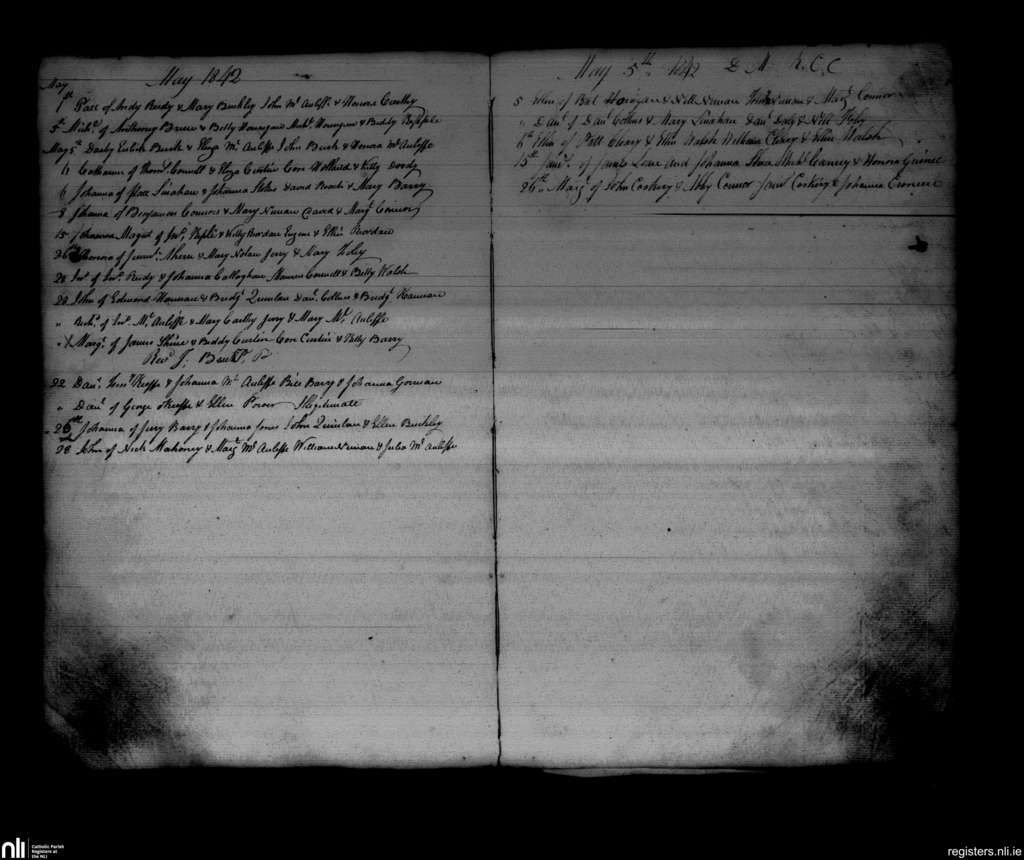 May 1842
May
1st Patt of Andy Reidy & Mary Buckley John Mc Auliffe & Honora Cauley
5th Mich. of Anthony & Betty Mich. & Biddy
May 5th Darby Buck & Eliza Mc Auliffe John Buck & Honora Mc Auliffe
11 Catharine of Thos. Connell & Eliza Curtin Con & Kitty Doody
6 Johanna of Patt Linahan & Johanna Stokes David Roach & Mary Barry
8 Johana of Benjamin Connors & Mary Nunan David & Marg. Connor
15 Johanna of & Kitty Riordan Eugene & Ellen Riordan
26th Honora of Ahern & Mary Nolan Jerry & Mary Foley
28 Jno. of Jno. Reidy & Johanna Callaghan Connell & Betty Walsh
29 John of Edmond Hannan & Bridg. Quinlan Dan. Collins & Bridg. Hannan
" of Jno. Mc Auliffe & Mary Cauley Jerry & Mary Mc Auliffe
" Marg. of James Shine & Biddy Curtin Con Curtin & Kitty Barry
Revd. J.
22 Dan. Keeffe & Johanna Mc Auliffe Bill Barry & Johanna Gorman
" Dan. of George Keeffe & Ellen Power Illegitimate
26th Johanna of Jerry Barry & Johanna Jones John Quinlan & Ellen Buckley
28 John of Nick Mahoney & Marg. Mc Auliffe William Nunan & Julia Mc Auliffe
May 5th 1842 D M R.C.C
5 Ellen of Bat Horigan & Nelly Nunan Nunan & Marg. Connor
" Dan. of Dan. Collins & Mary Linahan Dan. Daly & Nell Foley
6th Ellen of Patt Cleary & Ellen Walsh William Cleary & Ellen Walsh
15th of James Lane and Johanna Shea Mick Carney & Honora
26th Marg. of John Coskery & Abby Connor Coskery & Johanna
nli
Catholic Parish
Registers at
the NLI
registers.nli.ie